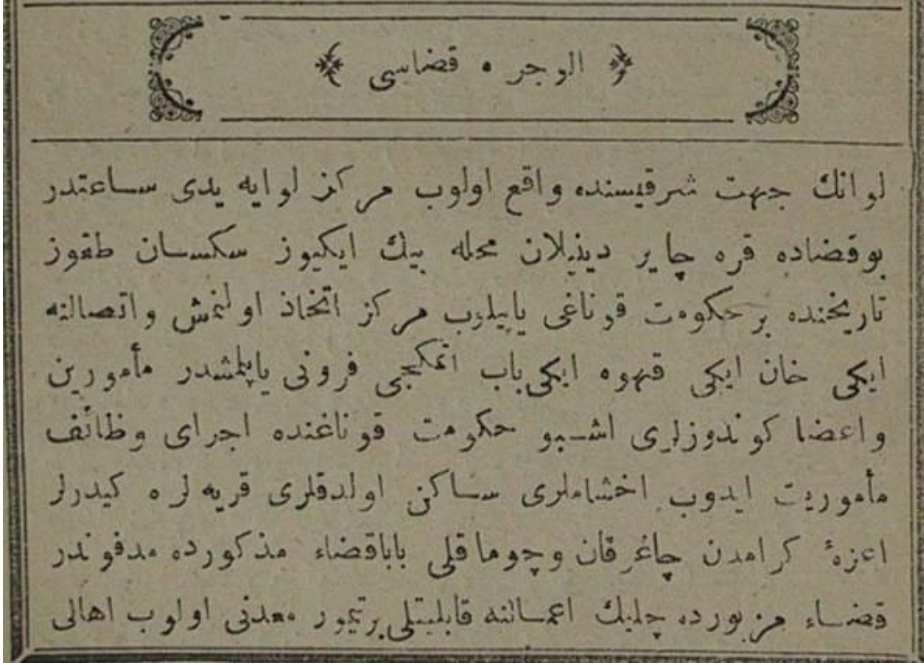 الوجره قضاسی
لوانك جهت شرقیسنده واقع اولوب مركز لوایه یدی ساعتدر
بوقضاده قره چایر دینیلان محله بیك ایكیوز سكسان طقوز
تاریخنده بر حكومت قوناغی یاپیلوب مركز اتخاذ اولنمش واتصالنه
ایكی خان ایكی قهوه ایكی باب اتمكجی فرونی یاپلمشدر مأمورین
واعضا كوندوزلری اشبو حكومت قوناغنده اجرای وظائف
مأموریت ایدوب اخشاملری ساكن اولدقلری قریه لره كیدرلر
اعزهٔ كرامدن چاغرقان وچوماقلی باباقضاء مذكورده مدفوندر
قضاء مزبورده چلیك اعمالنه قابلیتلی برتیمور معدنی اولوب اهالی